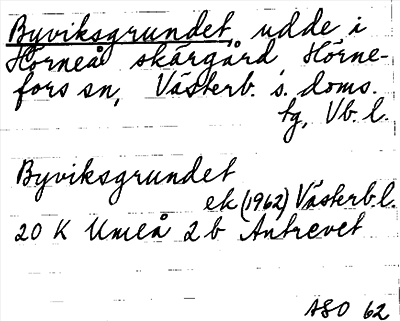 Byviksgrundet, udde i
Horneå skärgård Horne-
fors sn, Västerb. s. doms.
tg, Vb. l.
Byviksgrundet
ek (1962) Västerb.l.
20 K Umeå 2 b Antrevet
ASO 62